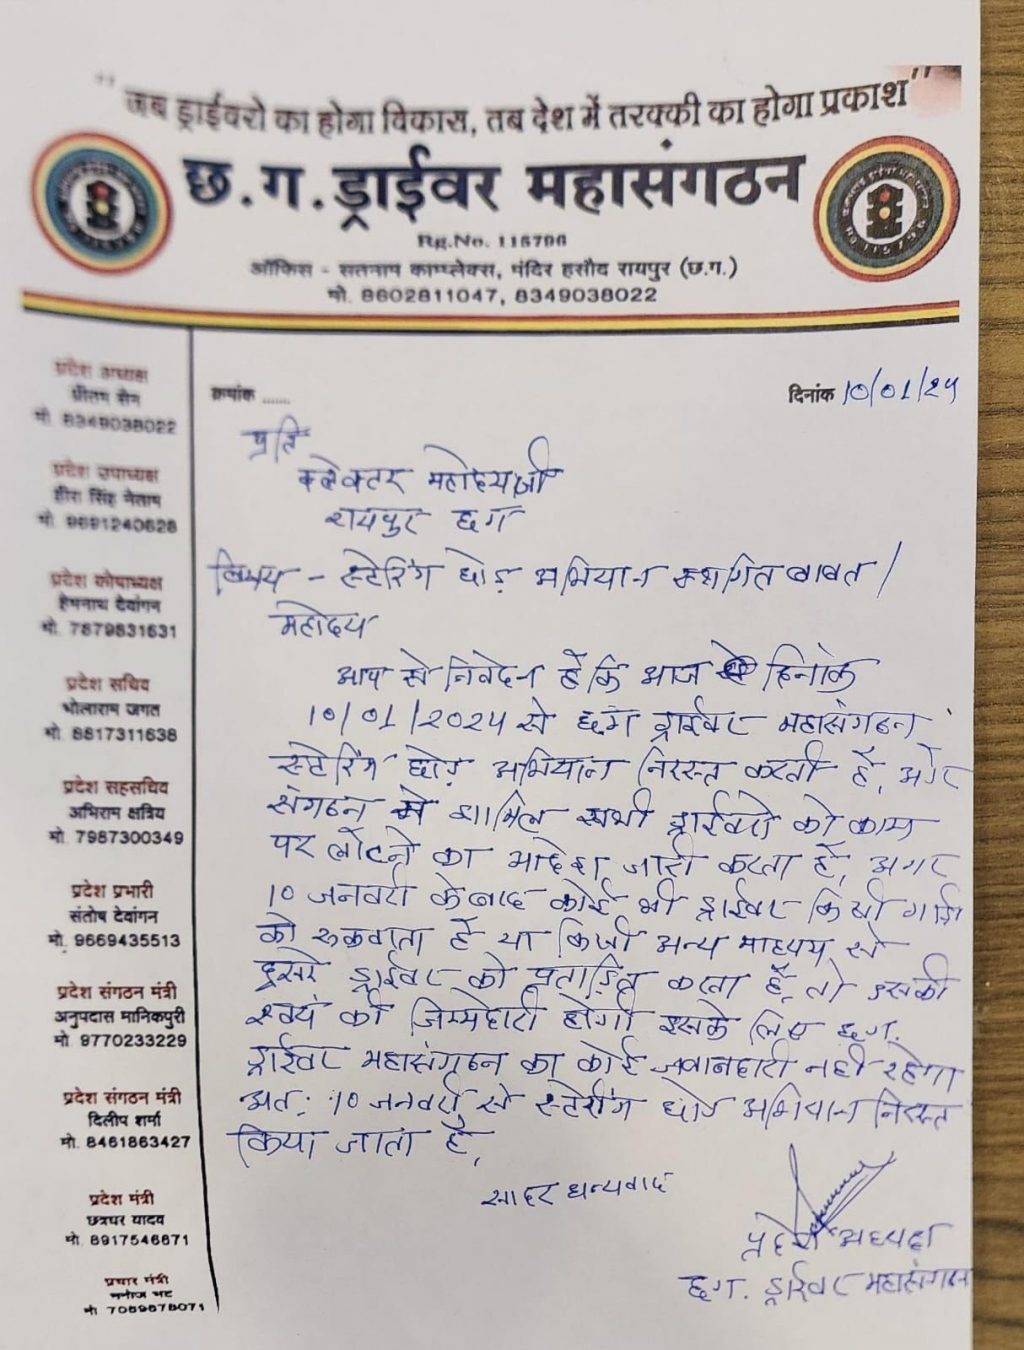 "जब ड्राईवरो का होगा विकास, तब देश में तरक्की का होगा प्रकाश"
छ.ग.ड्राईवर महासंगठन
Rg.No. 115796
ऑफिस - सतनाम काम्प्लेक्स, मंदिर हसौद रायपुर (छ.ग.)
मो. 8602811047, 8349038022
प्रदेश अध्यक्ष
प्रीतम सेन
मो. 8349038022
प्रदेश उपाध्यक्ष
हीरा सिंह नेताम
मो. 9691240628
प्रदेश कोषाध्यक्ष
हेमनाथ देवांगन
मो. 7879831631
प्रदेश सचिव
भोलाराम जगत
मो. 8817311638
प्रदेश सहसचिव
अभिराम क्षत्रिय
मो. 7987300349
प्रदेश प्रभारी
संतोष देवांगन
मो. 9669435513
प्रदेश संगठन मंत्री
अनुपदास मानिकपुरी
मो. 9770233229
प्रदेश संगठन मंत्री
दिलीप शर्मा
मो. 8461863427
प्रदेश मंत्री
छत्रपर यादव
मो. 8917546871
प्रचार मंत्री
मनोज भट
मो. 7089878071
क्रमांक ......
दिनांक 10/01/24
प्रति
कलेक्टर महोदय जी
रायपुर छग
विषय - स्टेरिंग छोड़ अभियान स्थगित बाबत।
महोदय
आप से निवेदन है कि आज दिनांक
10/01/2024 से छग ड्राईवर महासंगठन
स्टेरिंग छोड़ अभियान निरस्त करती है, और
संगठन मे शामिल सभी ड्राईवरो को काम
पर लौटने का आदेश जारी करता है, अगर
10 जनवरी के बाद कोई भी ड्राईवर किसी गाड़ी
को रुकवाता है या किसी अन्य माध्यम से
दुसरे ड्राईवर को प्रताड़ित करता है, तो उसकी
स्वयं की जिम्मेदारी होगी इसके लिए छग.
ड्राईवर महासंगठन का कोई जवाबदारी नही रहेगा
अत: 10 जनवरी से स्टेरींग छोड़ अभियान निरस्त
किया जाता है,
सादर धन्यवाद
प्रदेश अध्यक्ष
छग. ड्राईवर महासंगठन